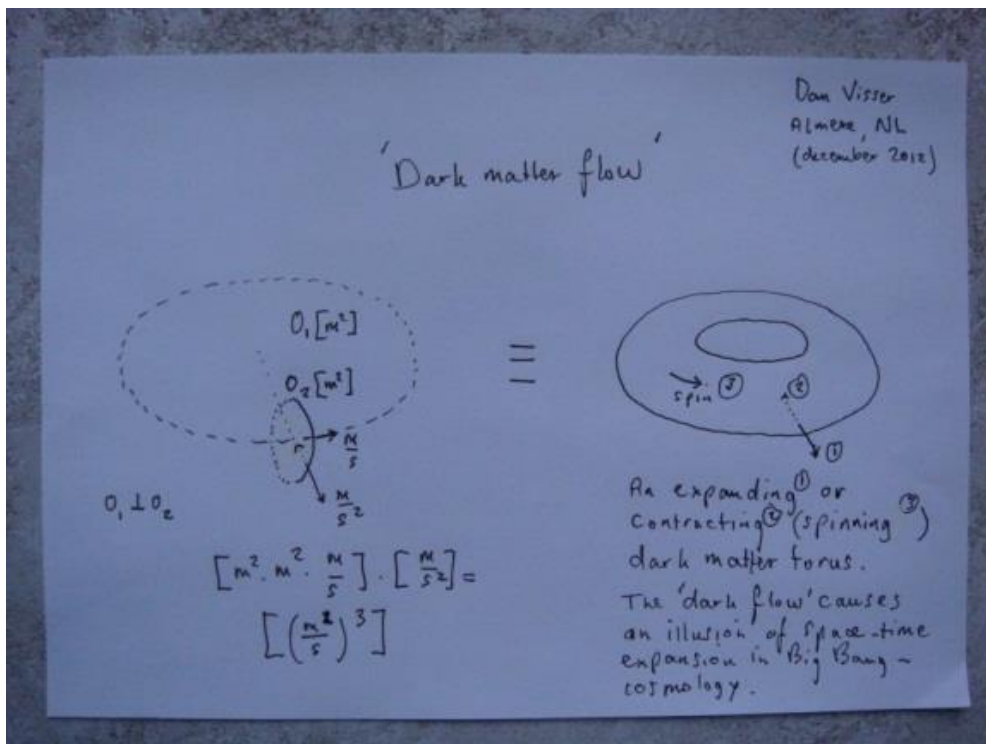 Dan Visser
Almere, NL
(december 2012)
'Dark matter flow'
O₁ [m²]
O₂ [m²]
r
m/s
m/s²
O₁ ⊥ O₂
[m². m². m/s] . [m/s²] =
[(m²/s)³]
≡
spin ③
②
①
An expanding① or
contracting② (spinning③)
dark matter torus.
The 'dark flow' causes
an illusion of space-time
expansion in Big Bang-
cosmology.